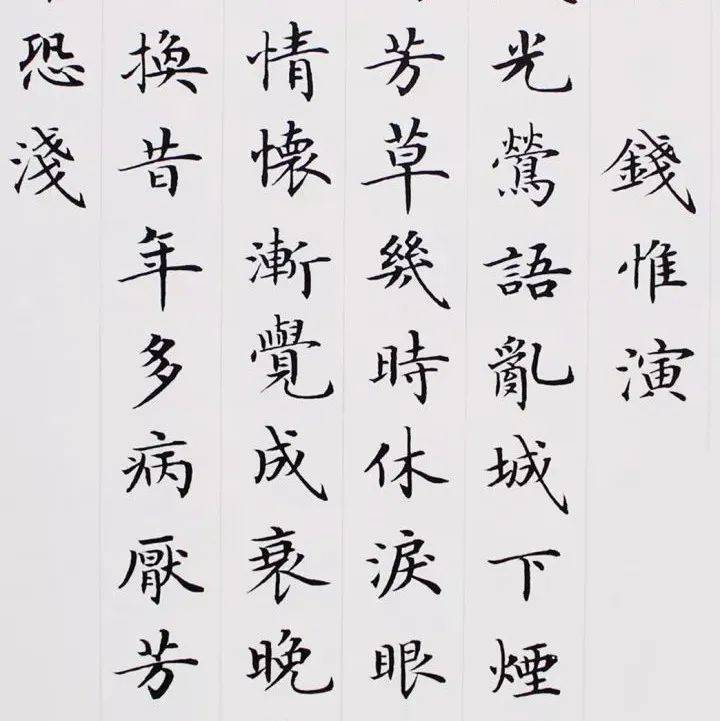 錢惟演
光鶯語亂城下煙
芳草幾時休淚眼
情懷漸覺成衰晚
換昔年多病厭芳
恐淺